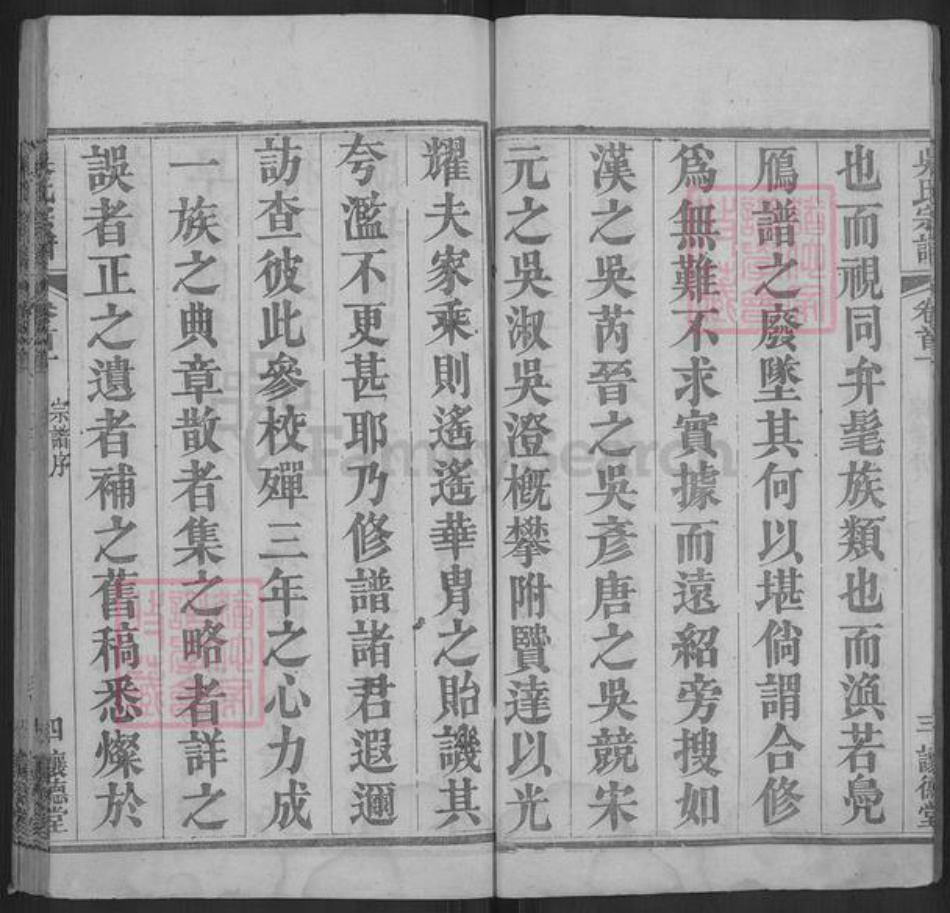 吳氏宗譜
卷首一
三 讓德堂
也而視同弁髦族類也而渙若鳧
鴈譜之廢墜其何以堪倘謂合修
爲無難不求實據而遠紹旁搜如
漢之吳芮晉之吳彥唐之吳競宋
元之吳淑吳澄概攀附賢達以光
耀夫家乘則遙遙華胄之貽譏其
夸濫不更甚耶乃修譜諸君遐邇
訪查彼此參校殫三年之心力成
一族之典章散者集之略者詳之
誤者正之遺者補之舊稿悉燦於
吳氏宗譜
卷首一
宗譜序
四 讓德堂
FamilySearch